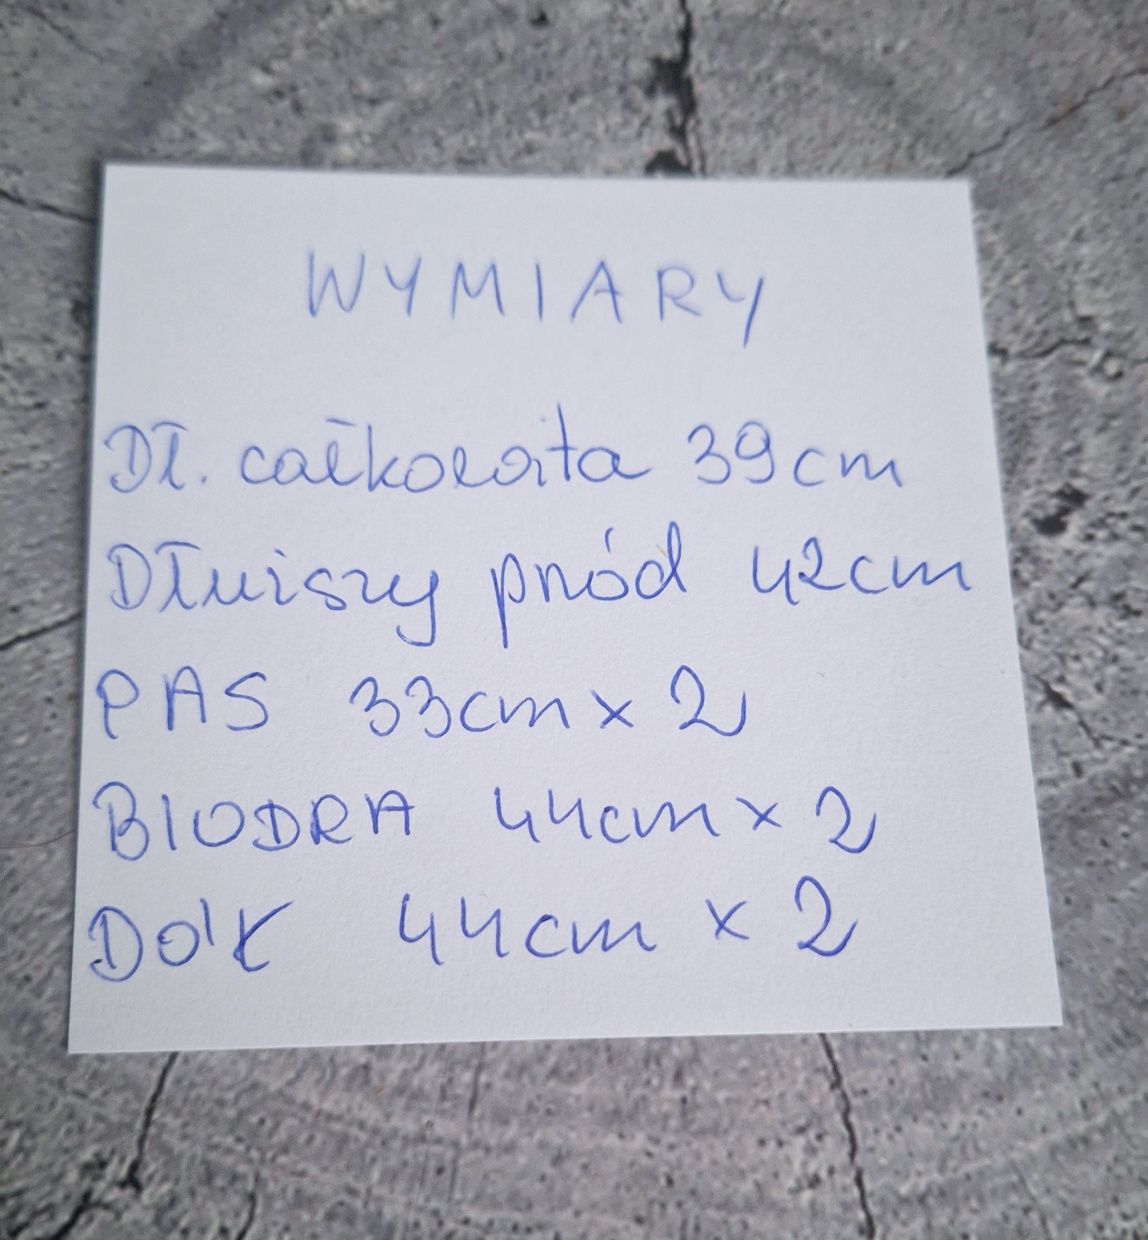 WYMIARY
Dł. całkowita 39 cm
Dłuższy przód 42 cm
PAS 33 cm x 2
BIODRA 44 cm x 2
DÓŁ 44 cm x 2